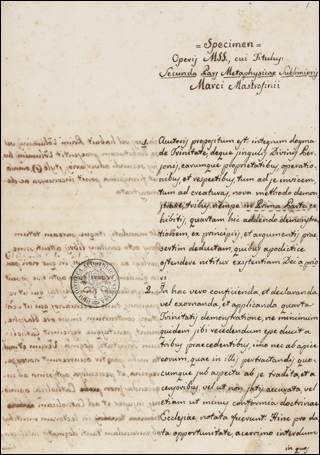 = Specimen =
Operis MSS., cui Titulus:
Secunda Pars Metaphysicae Sublimioris
Marci Mastrofinii
1. Auctoris propositum est integrum dogma
de Trinitate, deque singulis Divinis Per-
sonis, earumque proprietatibus, operatio-
nibus, et respectibus, tum ad se invicem
tum ad creaturas, nova methodo demon
tribus, in Prima Parte ex
hibitis, quartam hic addendo demonstra
tionem, ex principiis, et argumentis, prae
sertim deductam, quibus apodictice
ostendere nititur existentiam Dei a prio
ri
2. In hac vero conficienda, et declaranda
vel exornanda, et applicando quarta
Trinitatis demonstratione, ne minimum
quidem sibi recedendum esse duxit a
tribus praecedentibus, imo nec ab apice
eorum, quae in illis pertractandis, quo-
cumque sub aspectu ab se tradita, et a
censoribus, vel ut non satis accurata, vel
etiam ut minus conformia doctrinae
Ecclesiae notata fuerunt. Hinc pro da
ta opportunitate, acerrimo interdum
in quos